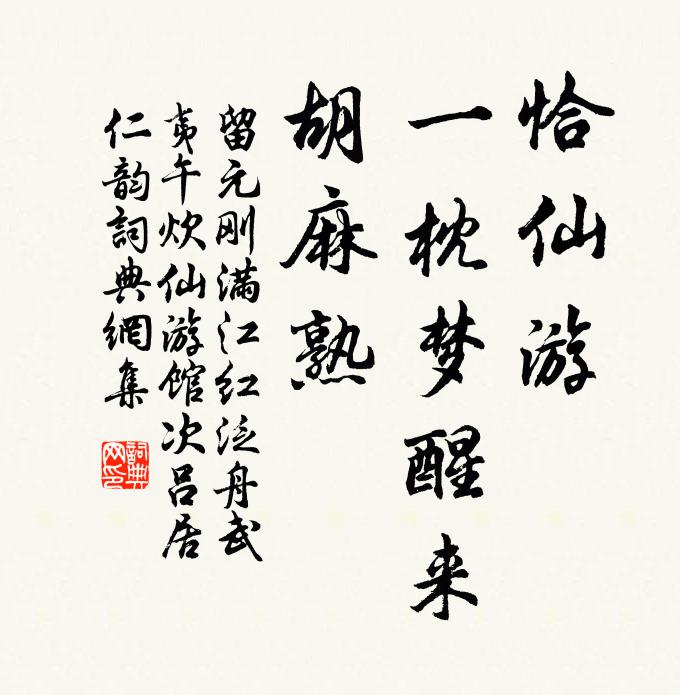 恰仙游
一枕梦醒来
胡麻熟
留元刚满江红泛舟武
夷午炊仙游馆次吕居
仁韵词典網集
詞典
网印